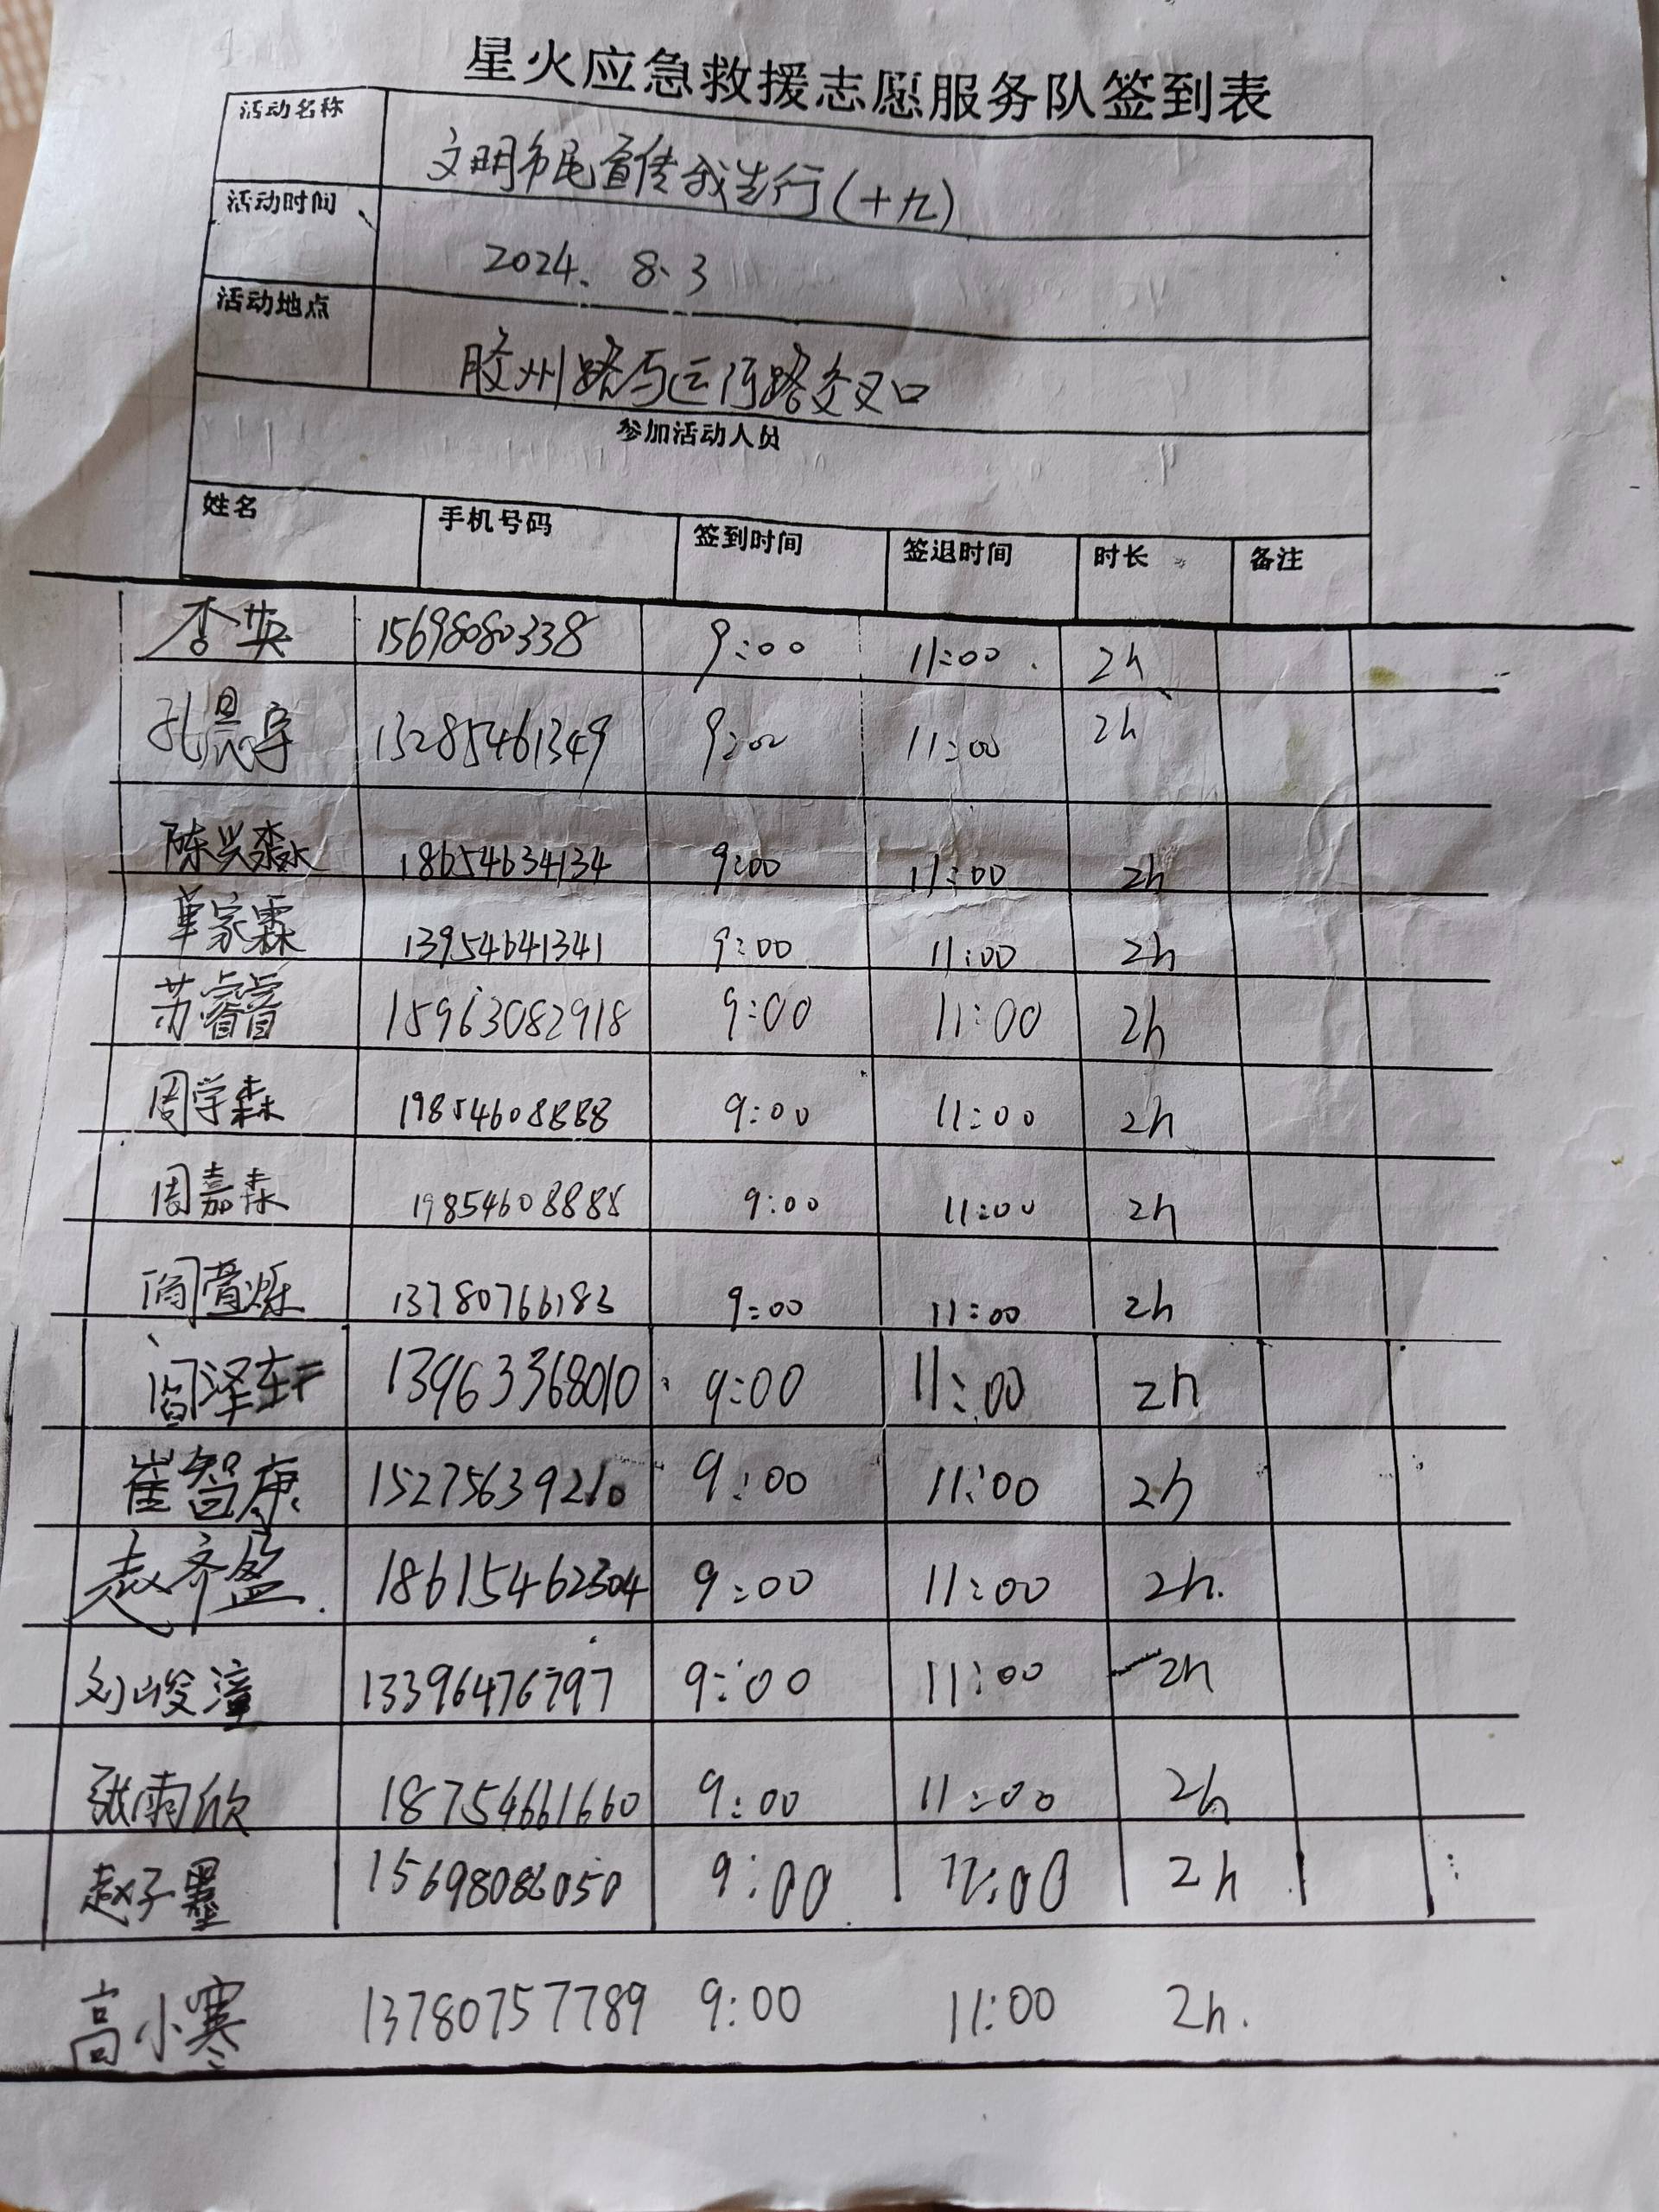 星火应急救援志愿服务队签到表
活动名称 文明市民宣传我先行(十九)
活动时间 2024. 8. 3
活动地点 胶州路与运河路交叉口
参加活动人员
姓名 手机号码 签到时间 签退时间 时长 备注
李英 15698080338 9:00 11:00 2h
孔晨宇 13285461349 9:00 11:00 2h
陈兴淼 18654634134 9:00 11:00 2h
单家霖 13954641341 9:00 11:00 2h
苏睿睿 15963082918 9:00 11:00 2h
周学森 19854608888 9:00 11:00 2h
周嘉森 19854608888 9:00 11:00 2h
13780766183 9:00 11:00 2h
阎泽轩 13963368010 9:00 11:00 2h
崔智康 15275639210 9:00 11:00 2h
赵齐盈 18615462304 9:00 11:00 2h.
刘峻潼 13396476797 9:00 11:00 2h
张雨欣 18754661660 9:00 11:00 2h
赵子墨 9:00 2h
高小寒 13780757789 9:00 11:00 2h.